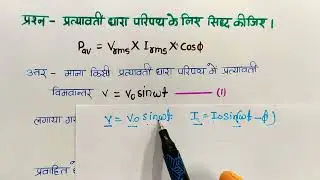 प्रश्न - प्रत्यावर्ती धारा परिपथ के लिए सिद्ध कीजिए ।
Pav = Vrms × Irms × Cosϕ
उत्तर - माना किसी प्रत्यावर्ती धारा परिपथ में प्रत्यावर्ती
विभवान्तर V = V₀ sinωt — (1)
लगाया गया
V = V₀ sinωt I = I₀ sin(ωt - ϕ)
प्रवाहित